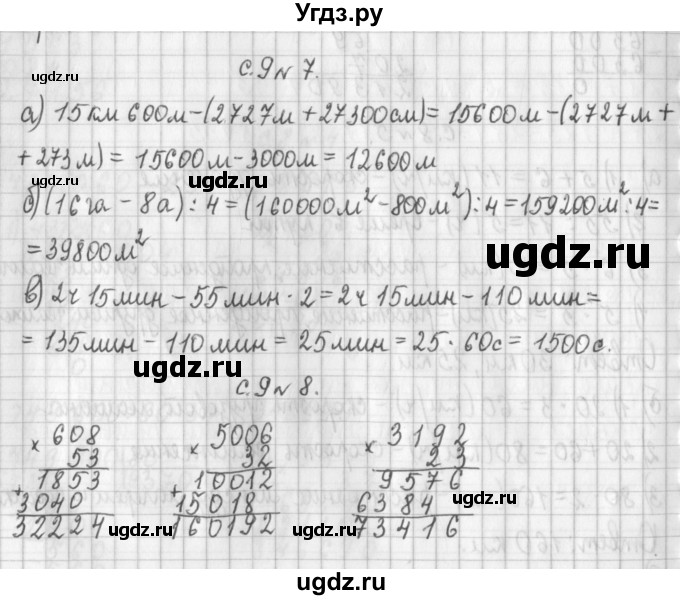 Угдз.ру
с.9 № 7.
ugdz.ru
ugdz.ru
а) 15 км 600м-(2727м + 27300см)= 15600м-(2727м+
+273м) = 15600м-3000м = 12600м
ugdz.ru
б) (16 га - 8а) : 4 = (160000м²-800м²):4=159200м²:4=
= 39800м²
ugdz.ru
в) 2ч 15мин - 55мин · 2 = 2ч 15мин - 110 мин=
= 135мин - 110 мин = 25мин = 25 · 60с = 1500с.
ugdz.ru
ugdz.ru
с.9 № 8.
× 608
53
1853
+ 3040
32224
× 5006
32
10012
+ 15018
160192
× 3192
23
9576
6384
73416
ugdz.ru
ugdz.ru
ugdz.ru
ugdz.ru